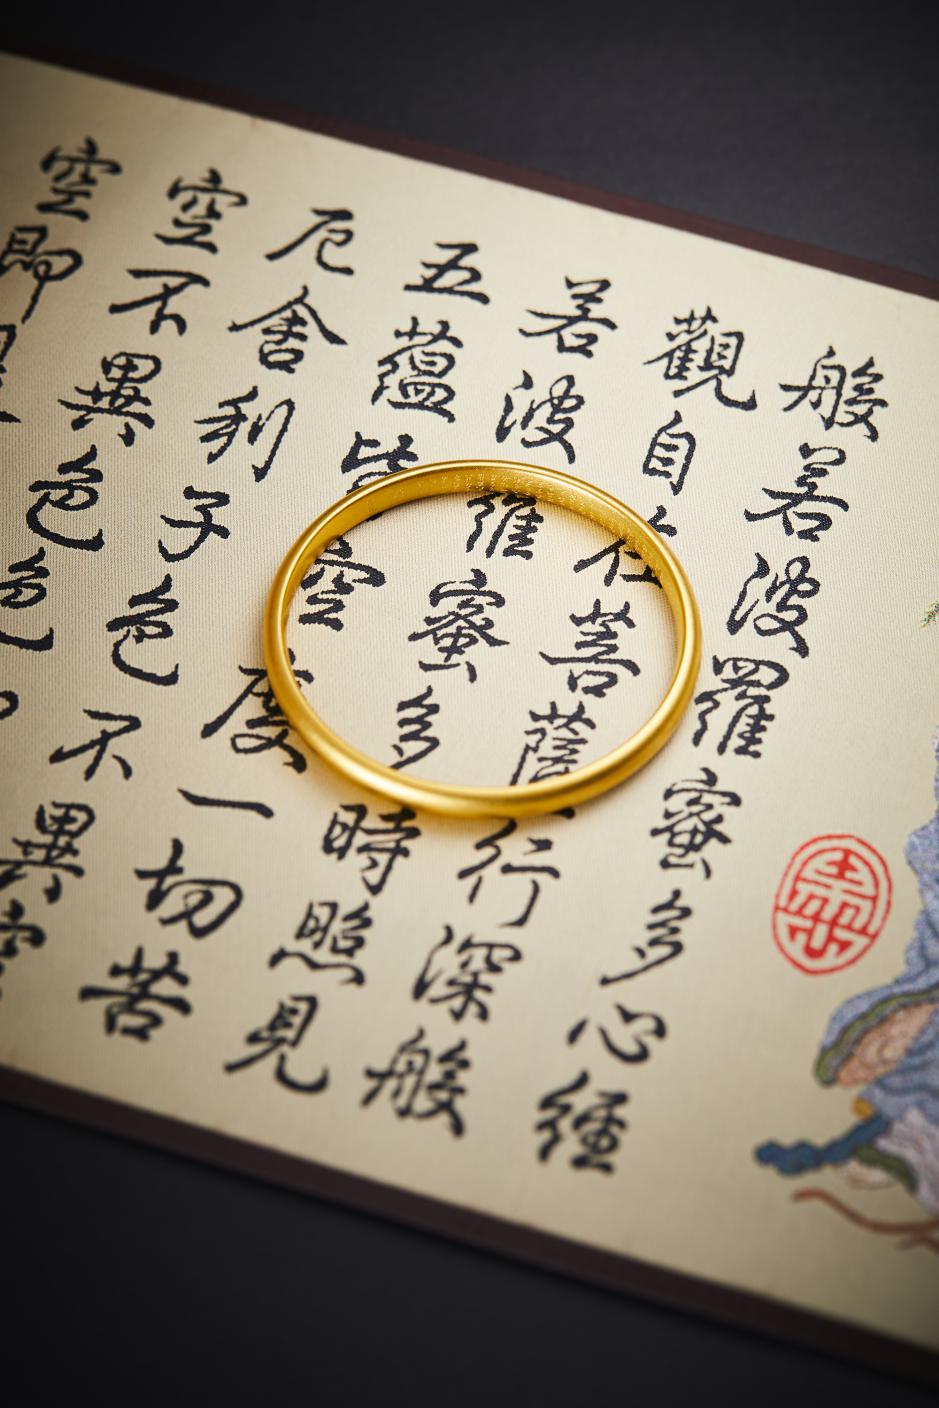 般若波羅蜜多心經
觀自在菩薩行深般
若波羅蜜多時照見
五蘊皆空度一切苦
厄舍利子色不異
空不異色
空即